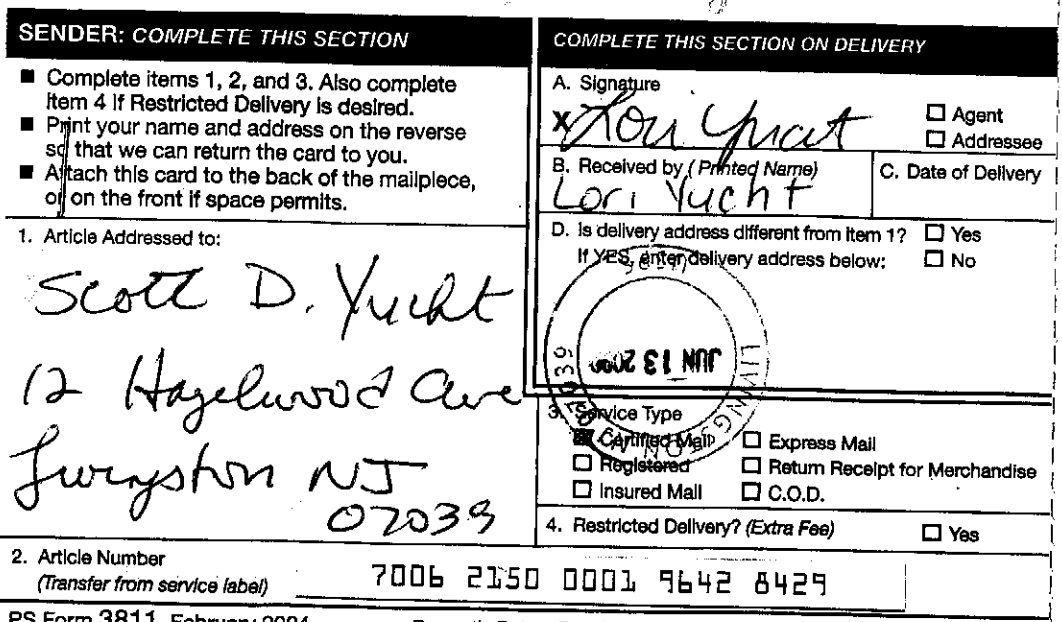 SENDER: COMPLETE THIS SECTION
■ Complete items 1, 2, and 3. Also complete
item 4 if Restricted Delivery is desired.
■ Print your name and address on the reverse
so that we can return the card to you.
■ Attach this card to the back of the mailpiece,
or on the front if space permits.
1. Article Addressed to:
Scott D. Yucht
12 Hazelwood Ave
Livingston NJ
07039
2. Article Number
(Transfer from service label)
7006 2150 0001 9642 8429
PS Form 3811, February 2004
COMPLETE THIS SECTION ON DELIVERY
A. Signature
X Lori Yucht
☐ Agent
☐ Addressee
B. Received by (Printed Name)
Lori Yucht
C. Date of Delivery
D. Is delivery address different from item 1? ☐ Yes
If YES, enter delivery address below: ☐ No
LIVINGSTON NJ 07039
JUN 13
3. Service Type
Certified Mail ☐ Express Mail
☐ Registered ☐ Return Receipt for Merchandise
☐ Insured Mail ☐ C.O.D.
4. Restricted Delivery? (Extra Fee) ☐ Yes